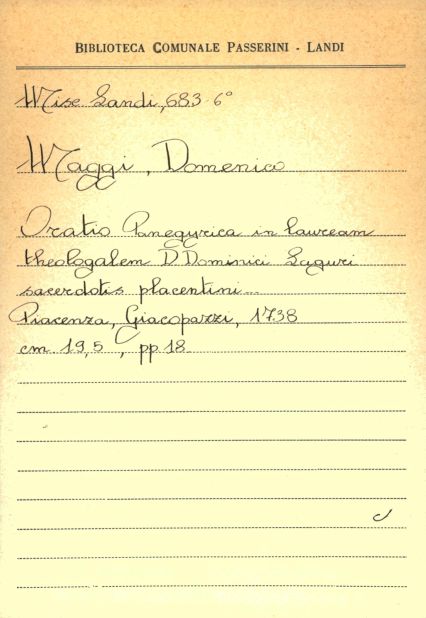 BIBLIOTECA COMUNALE PASSERINI - LANDI
Misc Landi, 683.6°
Maggi, Domenico
Oratio Panegyrica in lauream
theologalem D Dominici Laguri
sacerdotis placentini...
Piacenza, Giacopazzi, 1738
cm 19,5, pp 18